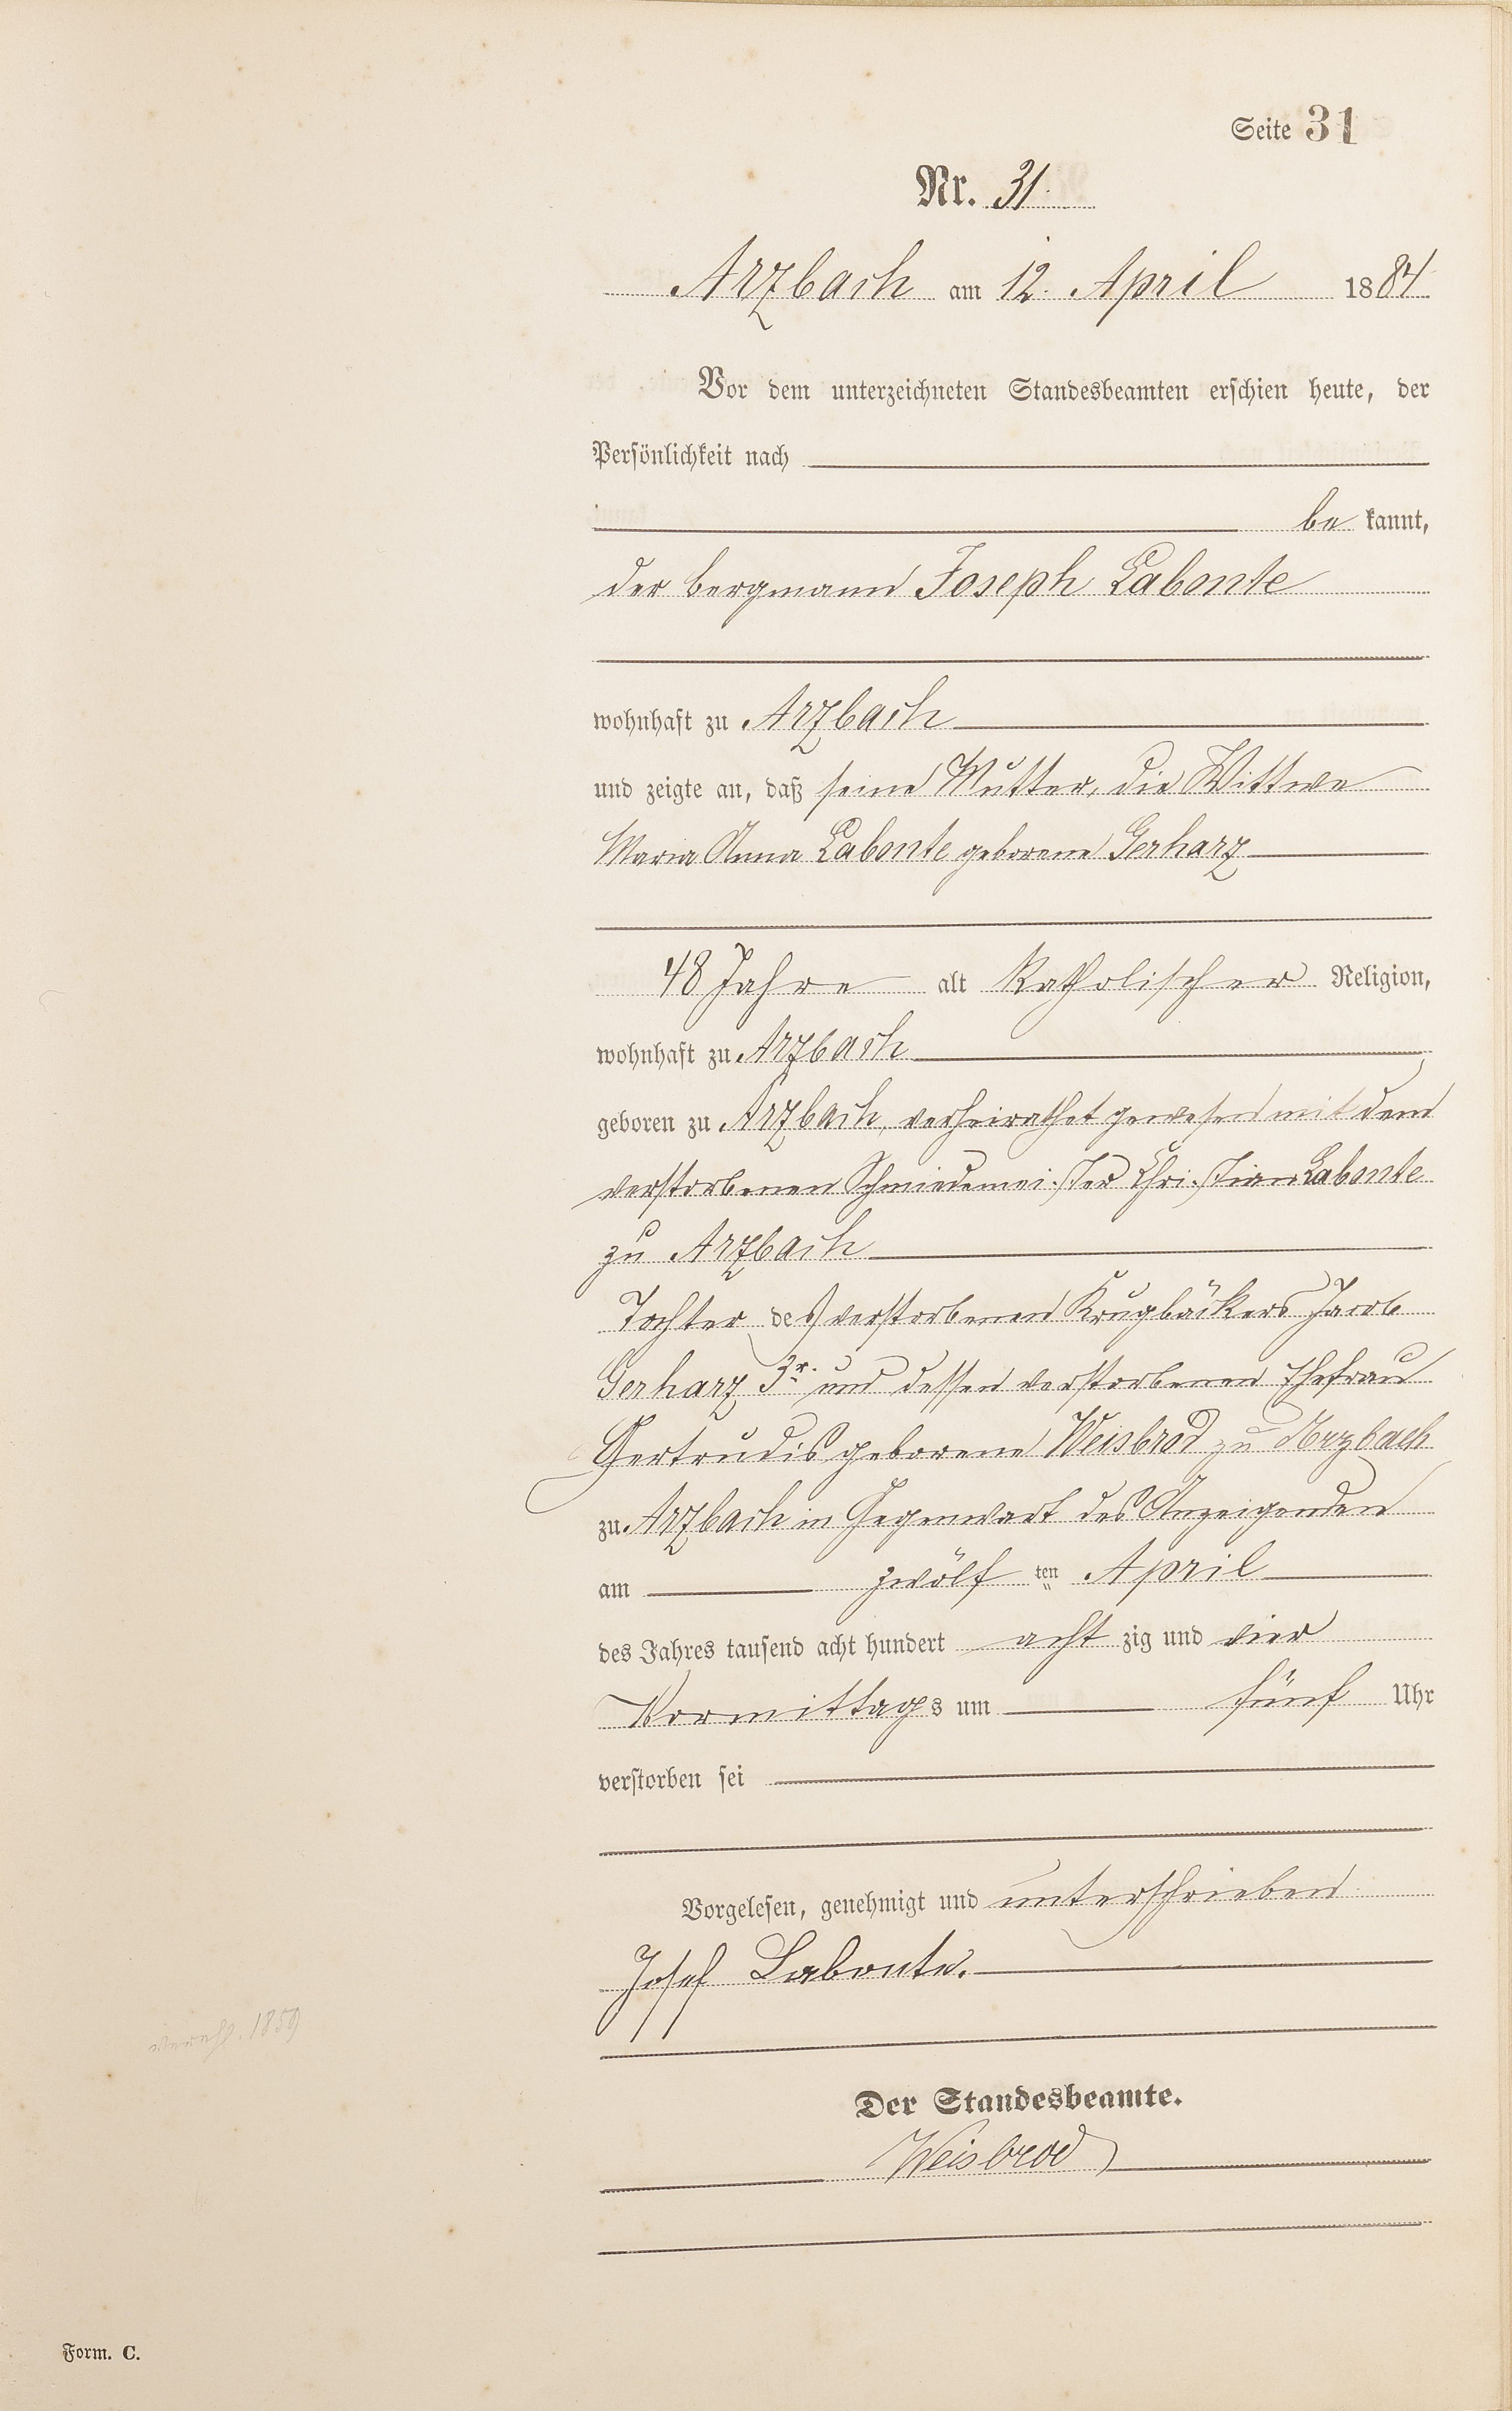 Seite 31
Nr. 31.
Arzbach am 12. April 1884.
Vor dem unterzeichneten Standesbeamten erschien heute, der
Persönlichkeit nach
be kannt,
der Bergmann Joseph Labonte
wohnhaft zu Arzbach
und zeigte an, daß seine Mutter, die Wittwe
Maria Anna Labonte geborene Gerharz
48 Jahre alt katholischer Religion,
wohnhaft zu Arzbach
geboren zu Arzbach, verheirathet gewesen mit dem
verstorbenen Schmiedemeister Christian Labonte
zu Arzbach
Tochter des verstorbenen Krugbäckers Jacob
Gerharz 3r. und dessen verstorbenen Ehefrau
Gertrudis geborene Weisbrod zu Arzbach
zu Arzbach in Gegenwart des Anzeigenden
am zwölf ten April
des Jahres tausend acht hundert acht zig und vier
Vormittags um fünf Uhr
verstorben sei
Vorgelesen, genehmigt und unterschrieben
Josef Labonte.
1859
Der Standesbeamte.
Weisbrod
Form. C.